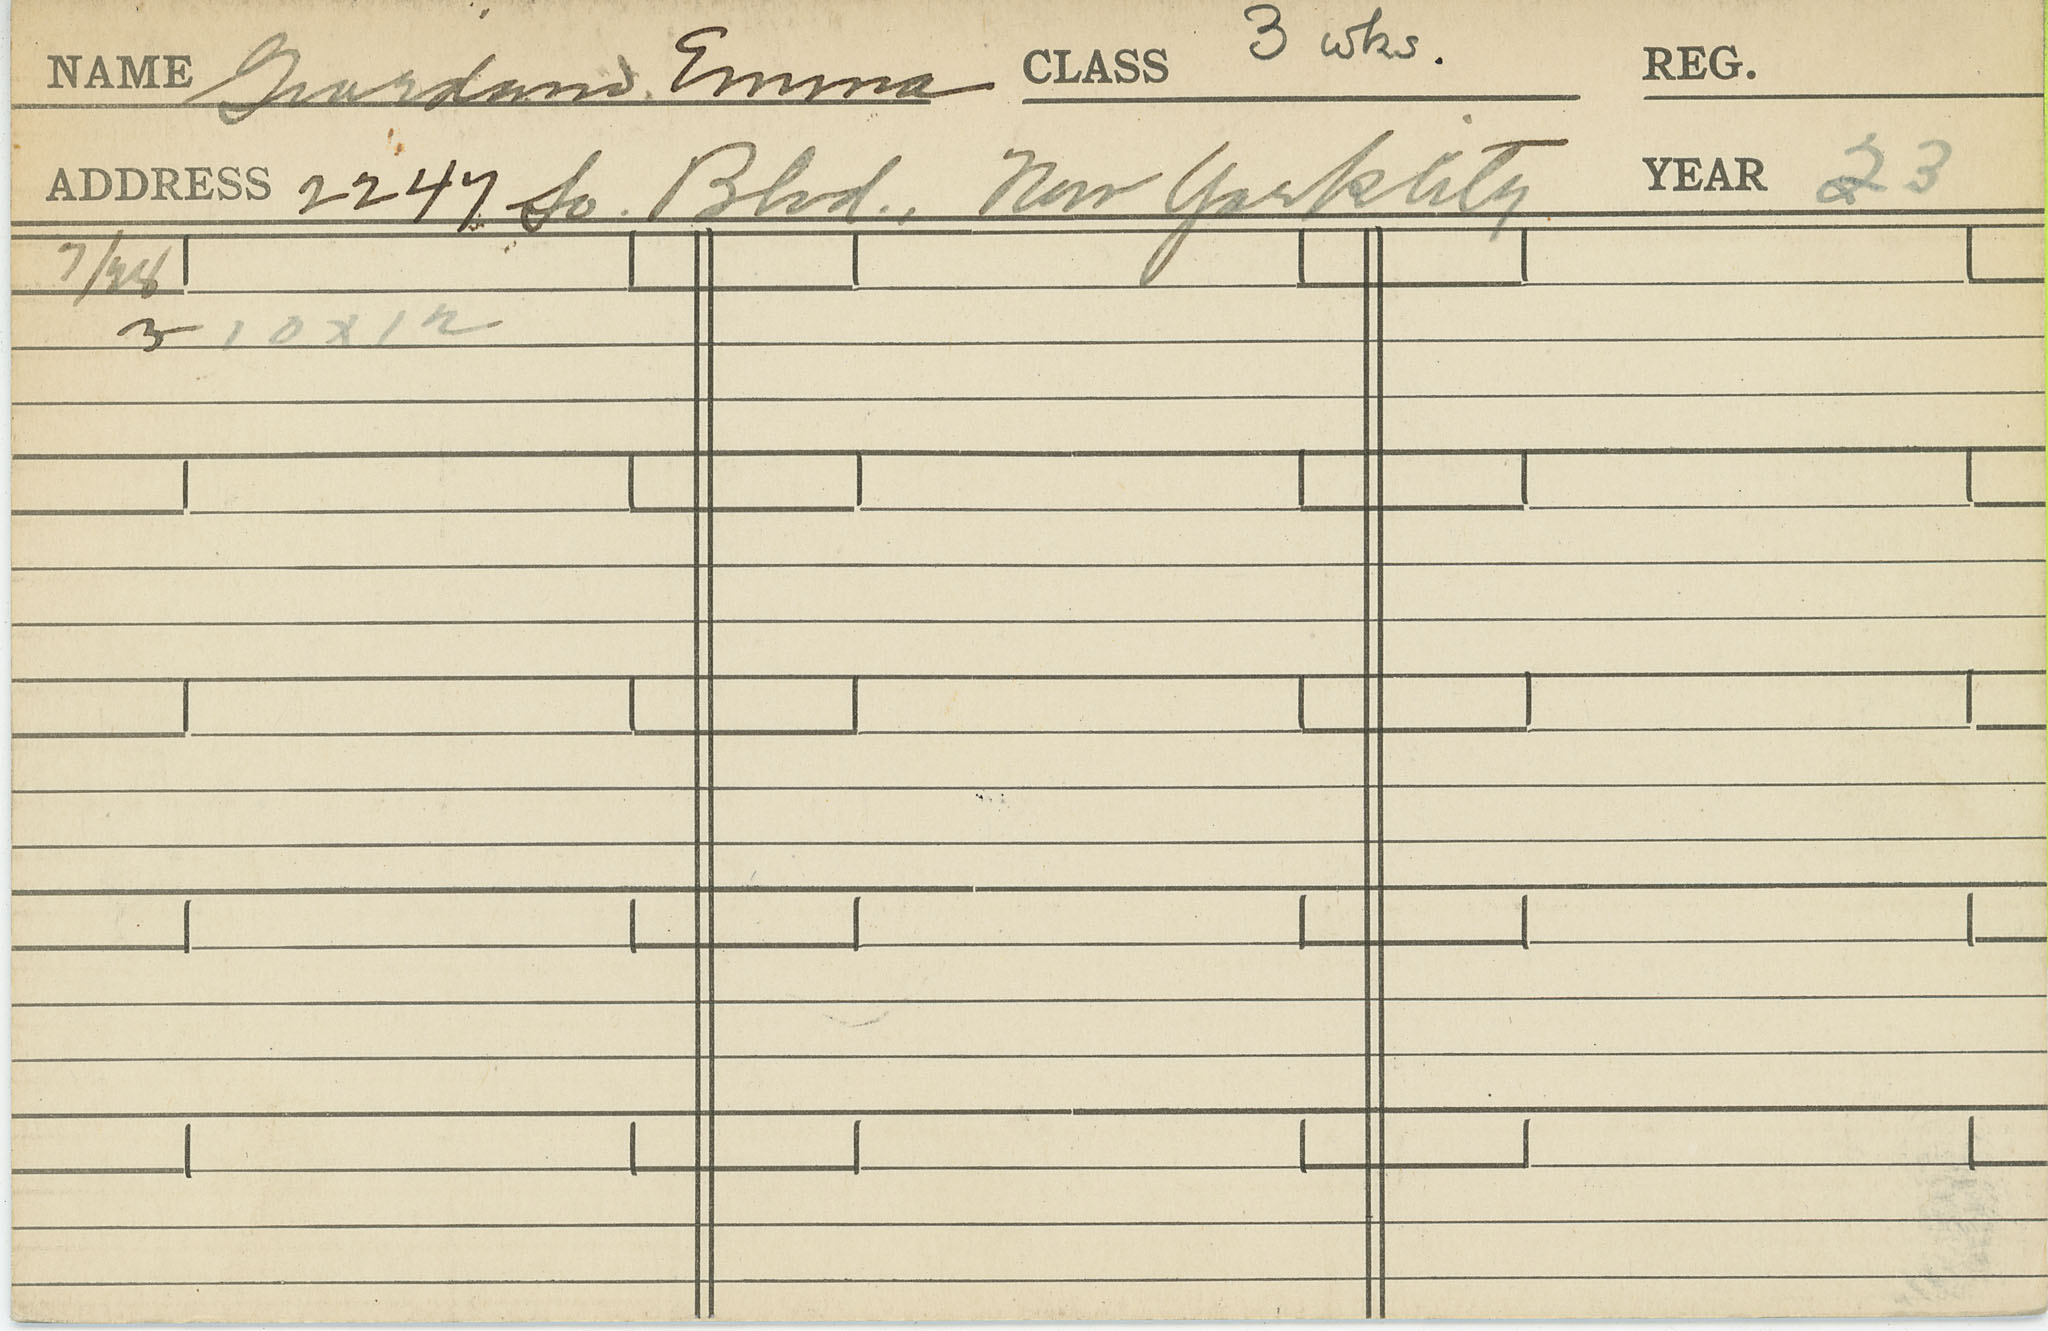 NAME Giordano, Emma CLASS 3 wks. REG.
ADDRESS 2247 So. Blvd., New York City YEAR 23
7/28
3 10x12